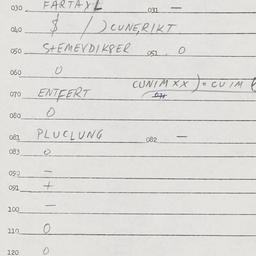 030 FARTAXL 031 —
040 $ / ) CUNERIKT
050 STEMEYDIKPER 051 0
060 0
CUNIMXX ) = CUIM (
070 ENTFERT
080 0
081 PLUCLUNG 082 —
083 0
090 —
091 +
100 —
110 0
120 0